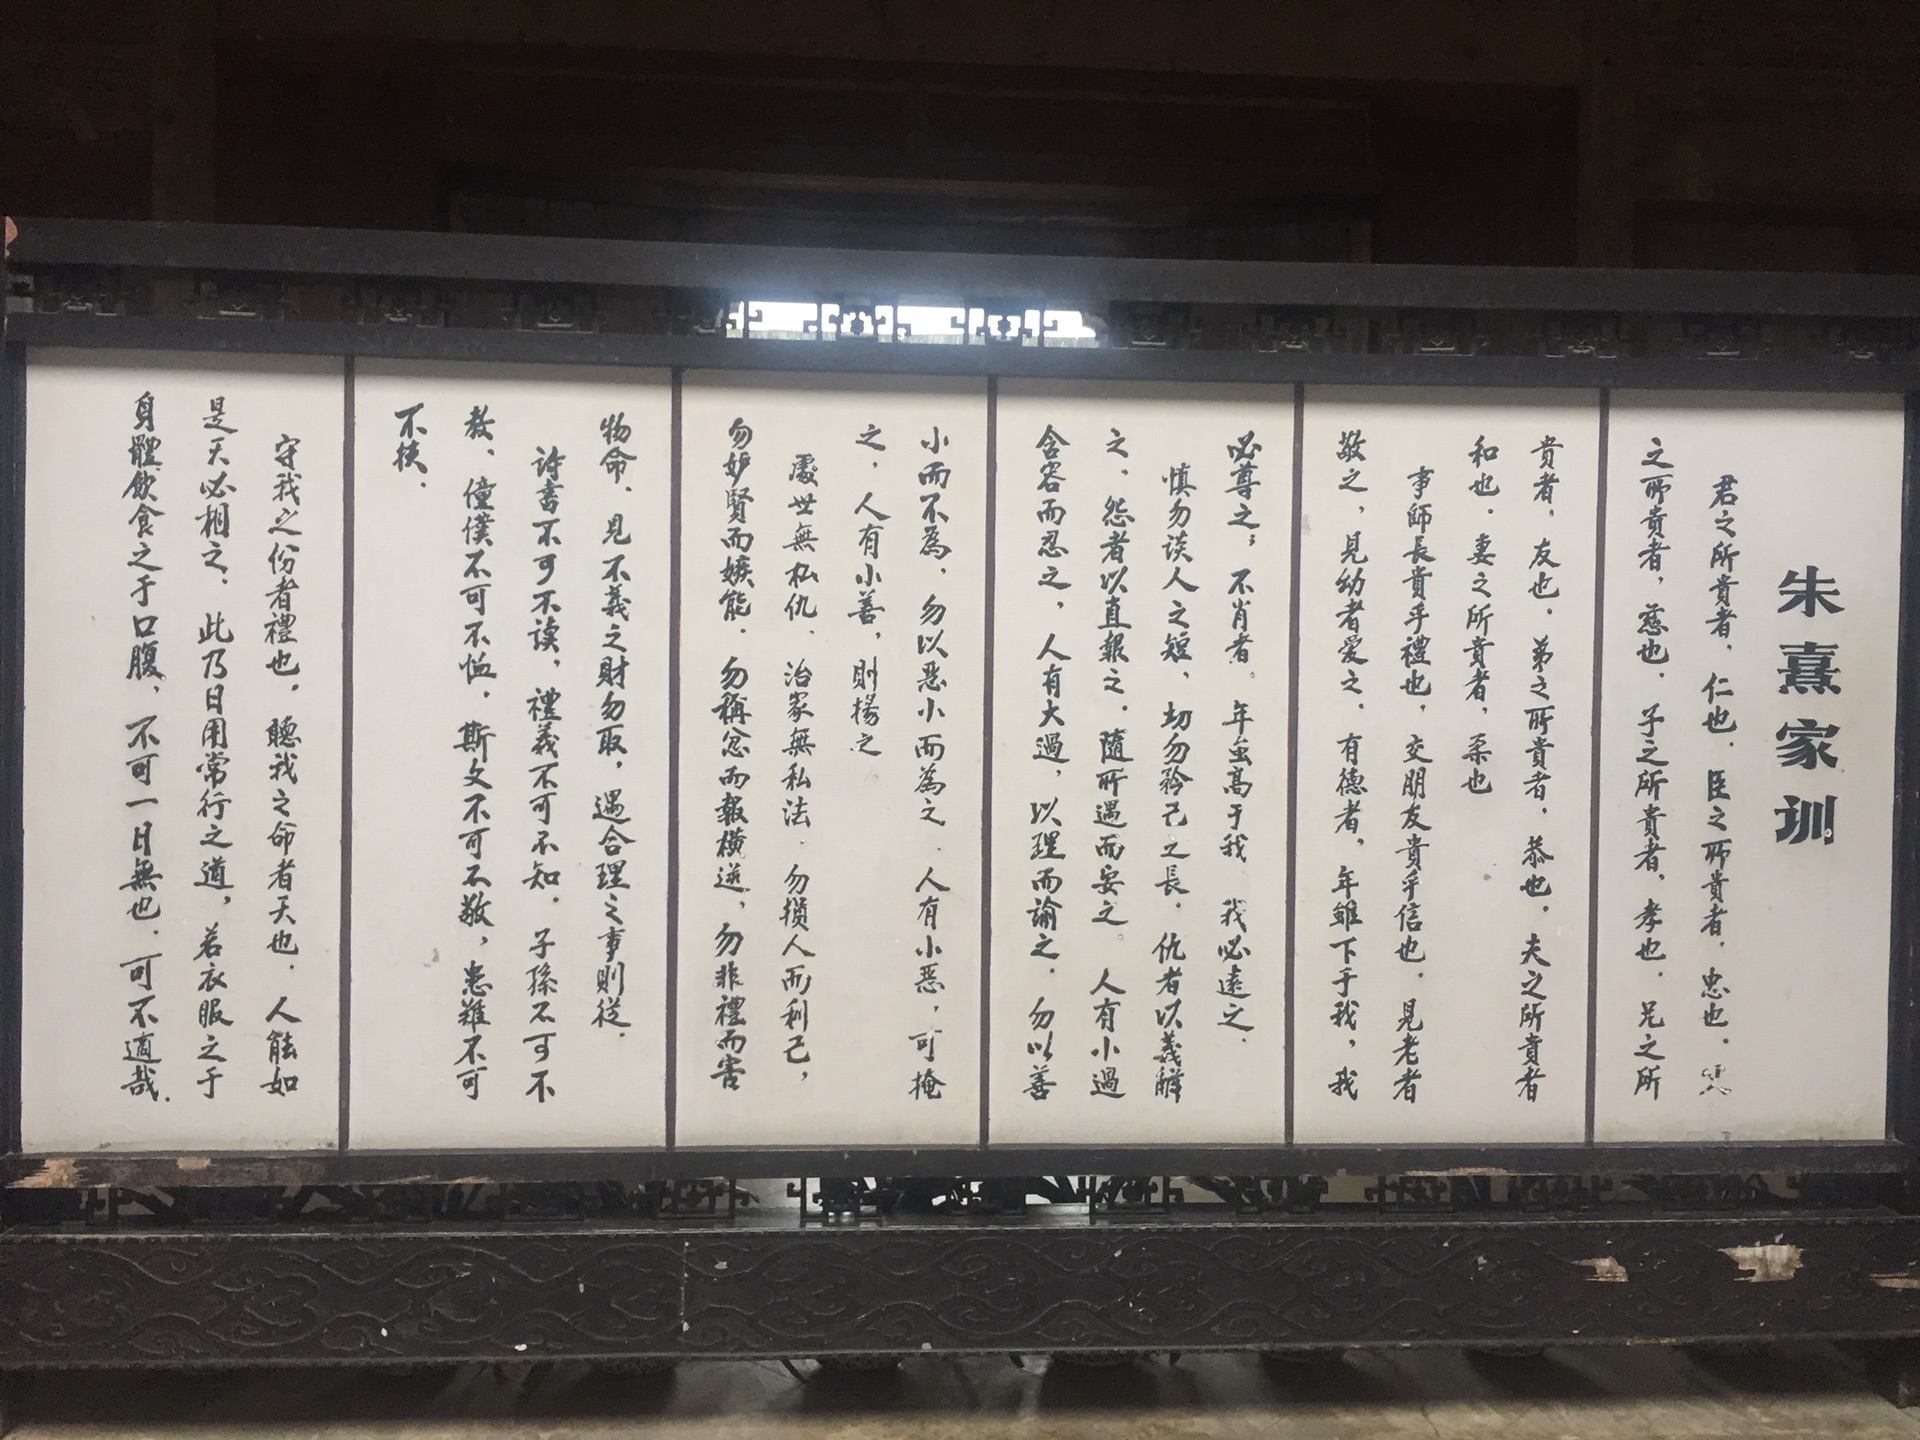 朱熹家训
君之所貴者，仁也．臣之所貴者，忠也．
之所貴者，慈也．子之所貴者，孝也．兄之所
貴者，友也．弟之所貴者，恭也．夫之所貴者
和也．妻之所貴者，柔也
事師長貴乎禮也，交朋友貴乎信也．見老者
敬之，見幼者爱之．有德者，年雖下于我，我
必尊之；不肖者。年虽高于我 我必遠之．
慎勿谈人之短，切勿矜己之長．仇者以義解
之．怨者以直報之．隨所遇而安之 人有小過
含容而忍之，人有大過，以理而諭之．勿以善
小而不為，勿以恶小而為之．人有小恶，可掩
之，人有小善，則揚之
處世無私仇．治家無私法．勿損人而利己，
勿妒賢而嫉能．勿稱忿而報橫逆，勿非禮而害
物命．見不義之財勿取，遇合理之事則從．
诗書不可不读，禮義不可不知．子孫不可不
教、僮僕不可不恤．斯文不可不敬，患難不可
不扶．
守我之份者禮也．聽我之命者天也．人能如
是天必相之．此乃日用常行之道，若衣服之于
身體飲食之于口腹，不可一日無也．可不適哉．